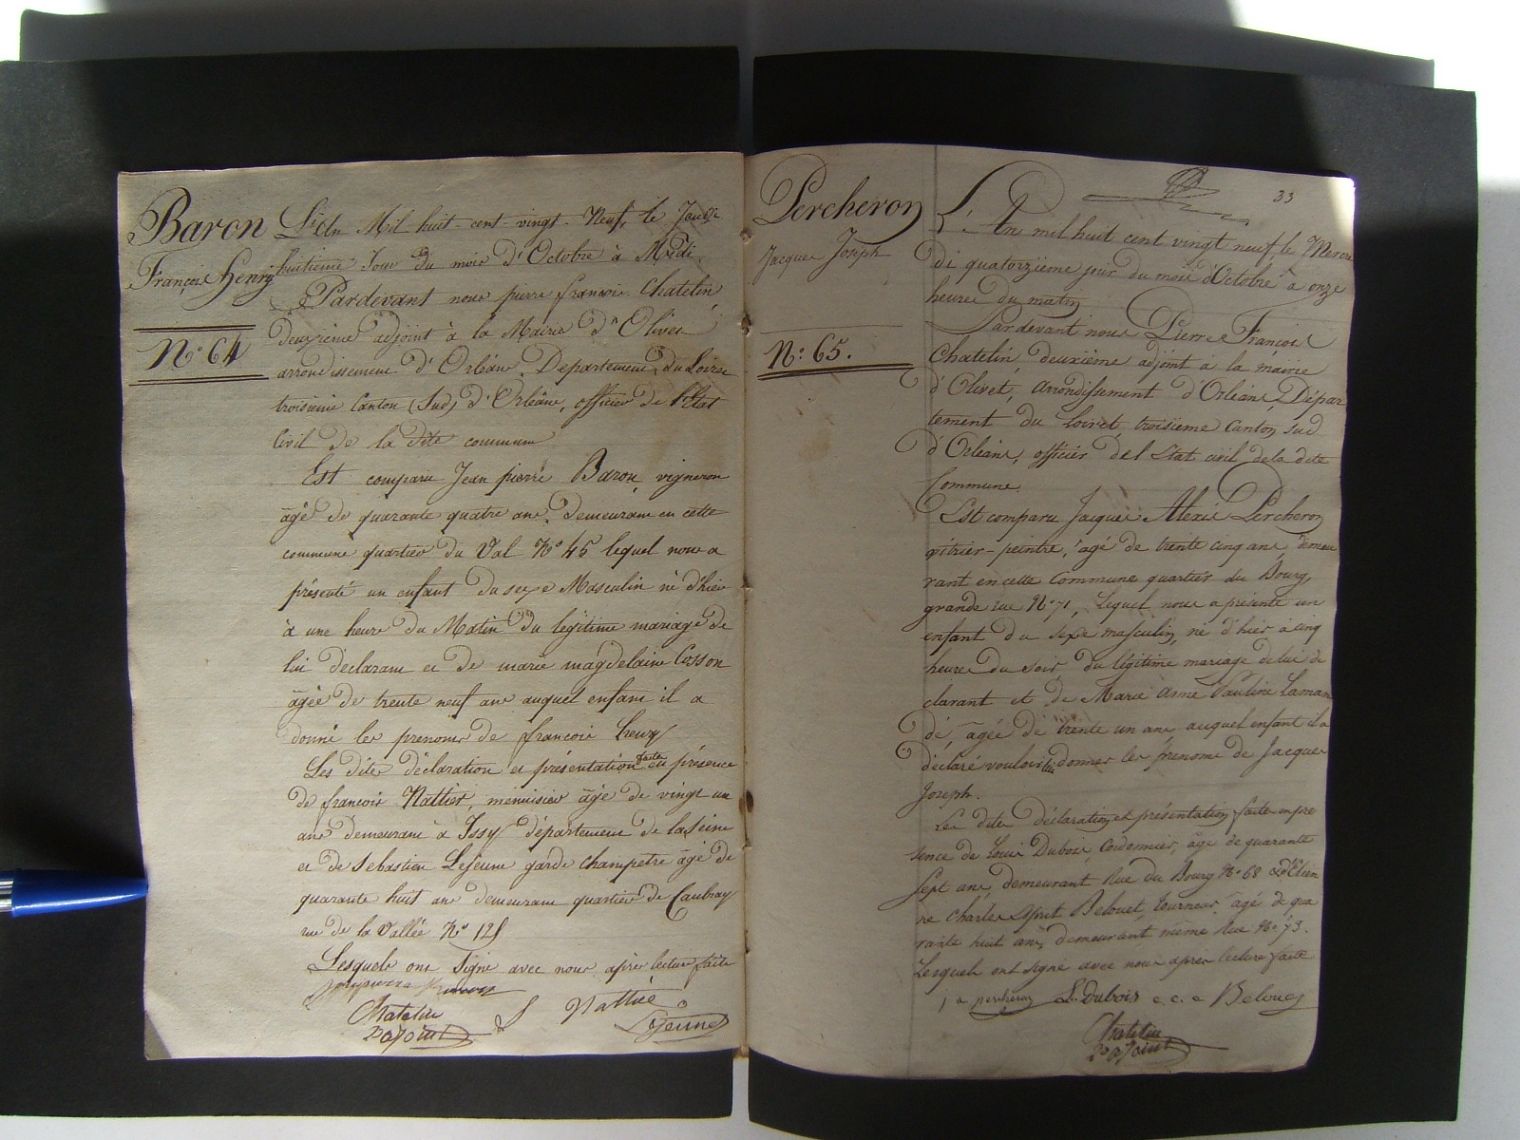 Baron
François Henry
N° 64
L'An Mil huit-cent vingt-Neuf, le Jeudi
huitieme Jour du mois d'Octobre à Midi,
Pardevant nous pierre françois Chatelin
deuxieme adjoint à la Mairie d'Olivet
arrondissement d'Orléans, Departement du Loiret
troisieme Canton (Sud) d'Orléans, officier de l'Etat
Civil de la dite commune
Est comparu Jean pierre Baron, vigneron
âgé de quarante quatre ans, demeurant en cette
commune quartier du Val N° 45 lequel nous a
présenté un enfant du sexe Masculin né d'hier
à une heure du Matin du légitime mariage de
lui déclarant et de marie magdelaine Cosson
âgée de trente neuf ans auquel enfant il a
donné les prenoms de françois henry
Les dites déclaration et présentation faite en présence
de françois Nattier, menuisier âgé de vingt un
ans demeurant à Issy département de la Seine
et de Sebastien Lejeune garde champetre âgé de
quarante huit ans demeurant quartier de Caubray
rue de la Vallée N° 125
Lesquels ont Signé avec nous après lecture faite
Chatelin
2e adjoint
Nattié
Lejeune
33
Percheron
Jacques Joseph
N°: 65.
L'An mil huit cent vingt neuf, le Mercre
di quatorzième jour du mois d'Octobre à onze
heures du matin
Pardevant nous Pierre François
Chatelin, deuxième adjoint à la mairie
d'Olivet, arrondissement d'Orléans, Dépar
tement du Loiret troisieme Canton sud
d'Orléans, officier de l'Etat civil de la dite
Commune.
Est comparu Jacques Alexis Percheron
vitrier-peintre, âgé de trente cinq ans, demeu
rant en cette Commune quartier du Bourg,
grande rue N° 71, Lequel nous a présenté un
enfant du sexe masculin, né d'hier à cinq
heures du soir du légitime mariage de lui dé
clarant et de Marie Anne Pauline Laman
dé, âgée de trente un ans auquel enfant il a
déclaré vouloir lui donner les prénoms de Jacques
Joseph.
Les dites déclaration et présentation faite en pré
sence de Louis Dubois, Cordonnier, âgé de quarante
Sept ans, demeurant Rue du Bourg N° 68 & d'Etien
ne Charles Esprit Belouet, tourneur âgé de qua
rante huit ans, demeurant même Rue N° 73.
Lesquels ont signé avec nous après lecture faite
j a percheron L. Dubois e. c. e Belouet
Chatelin
2e adjoint